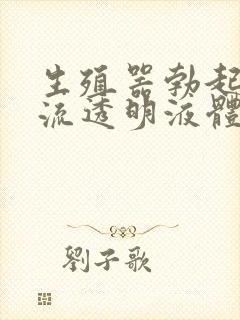 生殖器勃起
流透明液體
劉子歌